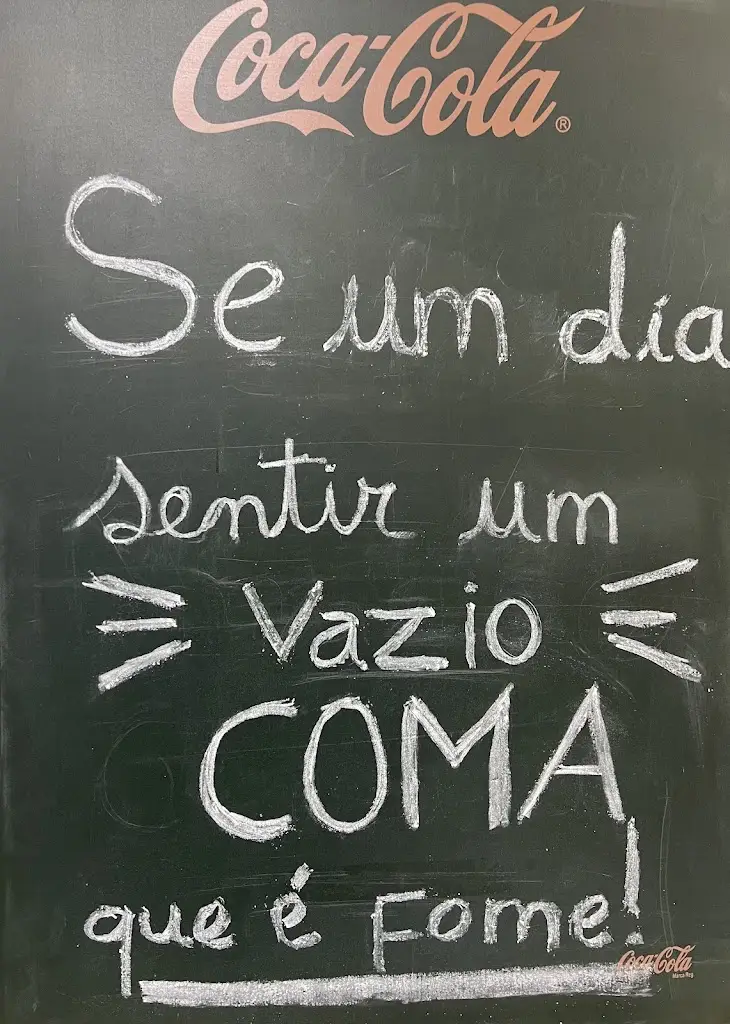 Coca-Cola®
Se um dia
sentir um
Vazio
COMA
que é Fome!
Coca-Cola
Marca Reg